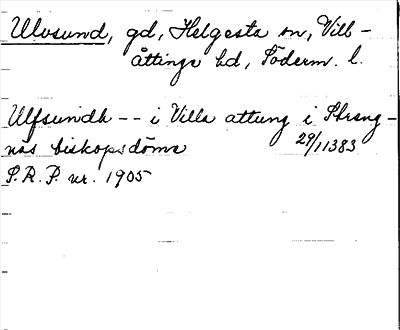 Ulvsund, gd, Helgesta sn, Vill-
åttinge hd, Söderm. l.
Ulfsundh -- i Villa attung i Strang-
näs biskopsdöme 29/11 1383
S.R.P. nr. 1905